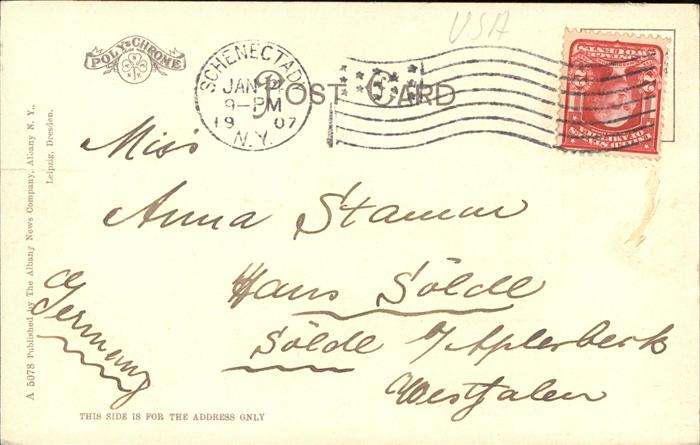 USA
POLY-CHROME
SCHENECTADY
JAN 2
9-PM
1907
N.Y.
POST CARD
Miss
Anna Stamm
Haus Sölde
Sölde b/Aplerbeck
Westfalen
Germany
A 5078 Published by The Albany News Company, Albany N. Y.,
Leipzig, Dresden.
THIS SIDE IS FOR THE ADDRESS ONLY